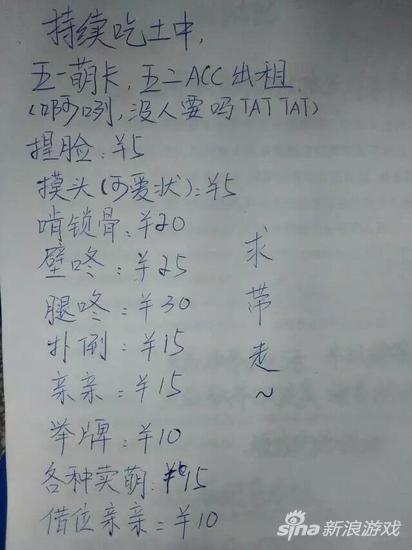 持续吃土中,
五一萌卡,五二ACC出租
(啊咧,没人要吗TAT TAT)
捏脸:¥5
摸头(可爱状):¥5
啃锁骨:¥20
壁咚:¥25
腿咚:¥30
扑倒:¥15
亲亲:¥15
举牌:¥10
各种卖萌:¥15
借位亲亲:¥10
求带走~
sina新浪游戏